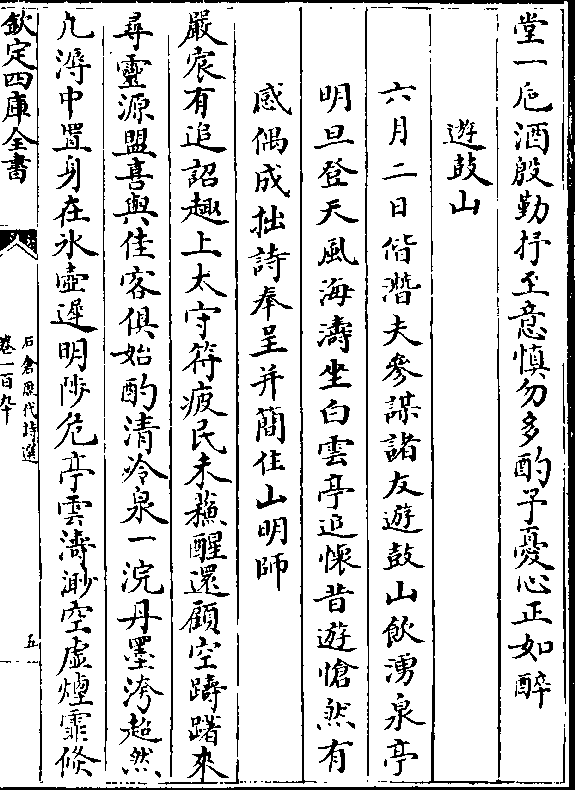 堂一卮酒殷勤抒至意慎勿多酌予憂心正如醉
遊鼓山
六月二日偕潛夫參謀諸友遊鼓山飲湧泉亭
明旦登天風海濤坐白雲亭追懷昔遊愴然有
感偶成拙詩奉呈并簡住山明師
嚴宸有追詔趣上太守符疲民未蘇醒還顧空躊躇來
尋靈源盟喜與佳客俱始酌清冷泉一浣丹墨洿超然
九淖中置身在氷壺遲明陟危亭雲濤渺空虛煙霏倐
欽定四庫全書
石倉歴代詩選
卷一百九十
五